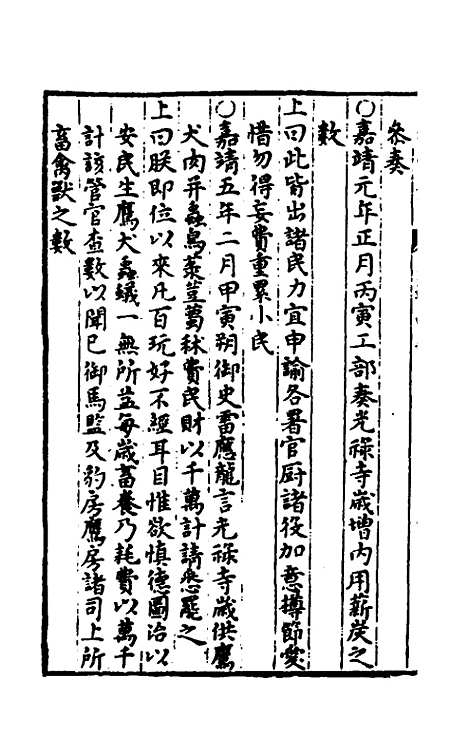 參奏
○嘉靖元年正月丙寅工部奏光祿寺歲增內用薪炭之
數
上曰此皆出諸民力宜申諭各署官厨諸役加意撙節愛
惜勿得妄費重累小民
○嘉靖五年二月甲寅朔御史雷應龍言光祿寺歲供鷹
犬肉并蟲鳥菉荳萬秫費民財以千萬計請悉罷之
上曰朕即位以來凡百玩好不經耳目惟欲慎德圖治以
安民生鷹犬蟲蟻一無所益每歲畜養乃耗費以萬千
計該管官查數以聞已御馬監及豹房鷹房諸司上所
畜禽獸之數